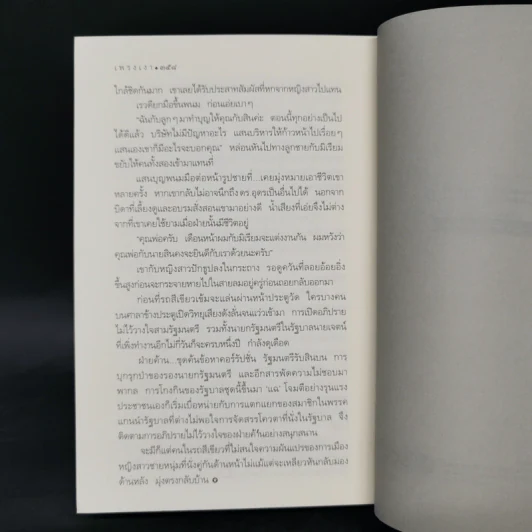 เพรงเงา • ๓๕๘
ใกล้ชิดกันมาก เขาเลยได้รับประสาทสัมผัสที่หกจากหญิงสาวไปแทน
เรวดียกมือขึ้นพนม ก่อนเอ่ยเบาๆ
"ฉันกับลูกๆ มาทำบุญให้คุณสินค่ะ ตอนนี้ทุกอย่างเป็นไป
ได้ดีแล้ว บริษัทไม่มีปัญหาอะไร แสนบริหารให้ก้าวหน้าไปเรื่อยๆ
แสนเองเขาก็มีอะไรจะบอกคุณ" หล่อนหันไปทางลูกชายกับมิเรียม
ขยับให้คนทั้งสองเข้ามาแทนที่
แสนบุญพนมมือต่อหน้ารูปชายที่...เคยมุ่งหมายเอาชีวิตเขา
หลายครั้ง หากเขากลับไม่อาจนึกถึง ดร.อุดรเป็นอื่นไปได้ นอกจาก
บิดาที่เลี้ยงดูและอบรมสั่งสอนเขามาอย่างดี น้ำเสียงที่เอ่ยจึงไม่ต่าง
จากที่เขาเคยใช้ยามเมื่อฝ่ายนั้นมีชีวิตอยู่
"คุณพ่อครับ เดือนหน้าผมกับมิเรียมจะแต่งงานกัน ผมหวังว่า
คุณพ่อกับนายสินคงจะยินดีกับเราด้วยนะครับ"
เขากับหญิงสาวปักธูปลงในกระถาง รอดูควันที่ลอยอ้อยอิ่ง
ขึ้นสูงก่อนจะกระจายหายไปในสายลมอยู่ครู่ก่อนถอยกลับออกมา
ก่อนที่รถสีเขียวเข้มจะแล่นผ่านหน้าประตูวัด ใครบางคน
บนศาลาข้างประตูเปิดวิทยุเสียงดังลั่นจนแว่วเข้ามา การเปิดอภิปราย
ไม่ไว้วางใจสามรัฐมนตรี รวมทั้งนายกรัฐมนตรีในรัฐบาลนายเจตน์
ที่เพิ่งทำงานอีกไม่กี่วันก็จะครบหนึ่งปี กำลังดุเดือด
ฝ่ายค้าน...ขุดค้นข้อหาคอร์รัปชัน รัฐมนตรีรับสินบน การ
บุกรุกป่าของรองนายกรัฐมนตรี และอีกสารพัดความไม่ชอบมา
พากล การโกงกินของรัฐบาลชุดนี้ขึ้นมา 'แฉ' โจมตีอย่างรุนแรง
ประชาชนเองก็เริ่มเบื่อหน่ายกับการแตกแยกของสมาชิกในพรรค
แกนนำรัฐบาลที่ต่างไม่พอใจการจัดสรรโควตาที่นั่งในรัฐบาล จึง
ติดตามการอภิปรายไม่ไว้วางใจของฝ่ายค้านอย่างสนุกสนาน
จะมีก็แต่คนในรถสีเขียวที่ไม่สนใจความผันแปรของการเมือง
หญิงสาวชายหนุ่มที่นั่งคู่กันด้านหน้าไม่แม้แต่จะเหลียวหันกลับมอง
ด้านหลัง มุ่งตรงกลับบ้าน